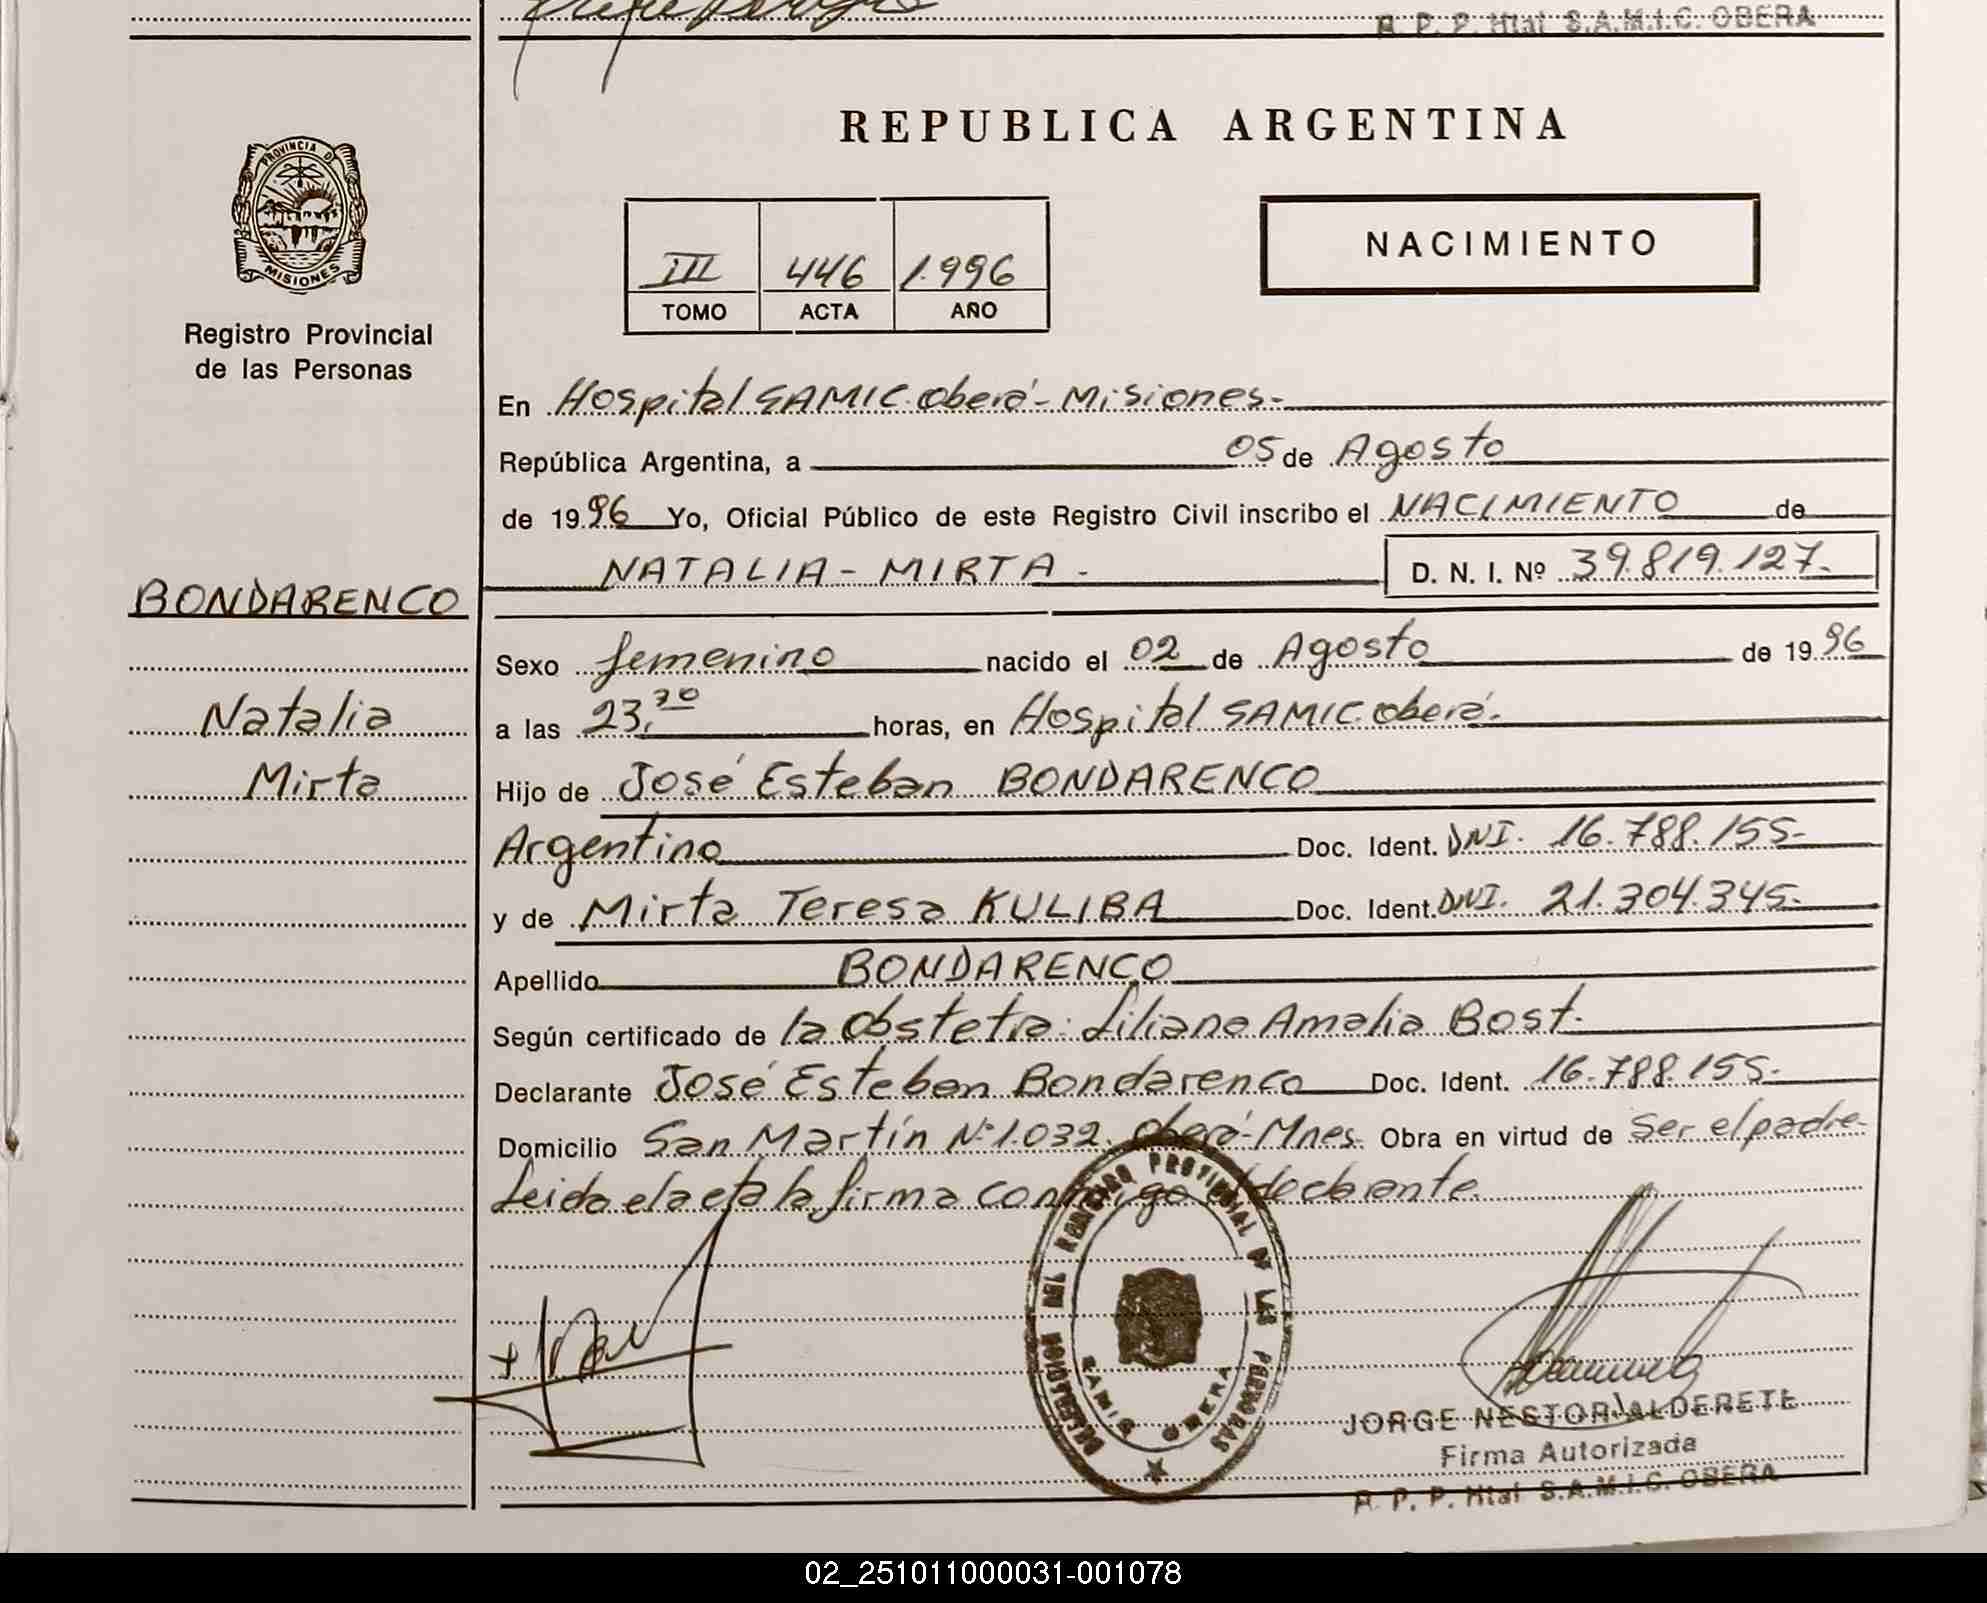 R. P. P. Htal S.A.M.I.C. OBERA
REPUBLICA ARGENTINA
PROVINCIA DE
MISIONES
Registro Provincial
de las Personas
III 446 1.996
TOMO ACTA AÑO
NACIMIENTO
En Hospital SAMIC. Oberá - Misiones.-
República Argentina, a 05 de Agosto
de 1996 Yo, Oficial Público de este Registro Civil inscribo el NACIMIENTO de
NATALIA - MIRTA - D. N. I. Nº 39.819.127.
BONDARENCO
Natalia
Mirta
Sexo femenino nacido el 02 de Agosto de 1996
a las 23,30 horas, en Hospital SAMIC. Oberá.
Hijo de José Esteban BONDARENCO
Argentino Doc. Ident. DNI. 16.788.155-
y de Mirta Teresa KULIBA Doc. Ident. DNI. 21.304.345-
Apellido BONDARENCO
Según certificado de la Obstetra: Liliana Amalia Bost.
Declarante José Esteban Bondarenco Doc. Ident. 16.788.155.
Domicilio San Martín Nº 1.032. Oberá - Mnes. Obra en virtud de Ser el padre-
Leida el acta la firma conmigo el declarante
DELEGACION DEL REGISTRO PROVINCIAL DE LAS PERSONAS
SAMIC OBERA
JORGE NESTOR ALDERETE
Firma Autorizada
R. P. P. Htal S.A.M.I.C. OBERA
02_251011000031-001078